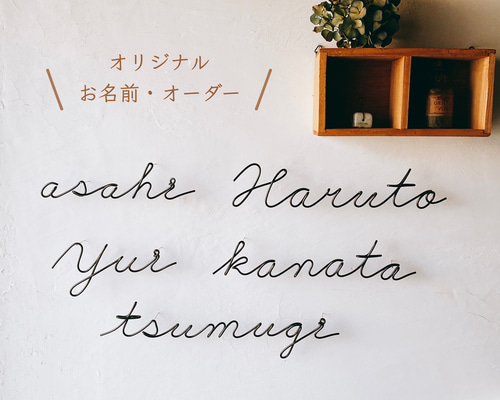 オリジナル
お名前・オーダー
asahi Haruto
Yui kanata
tsumugi